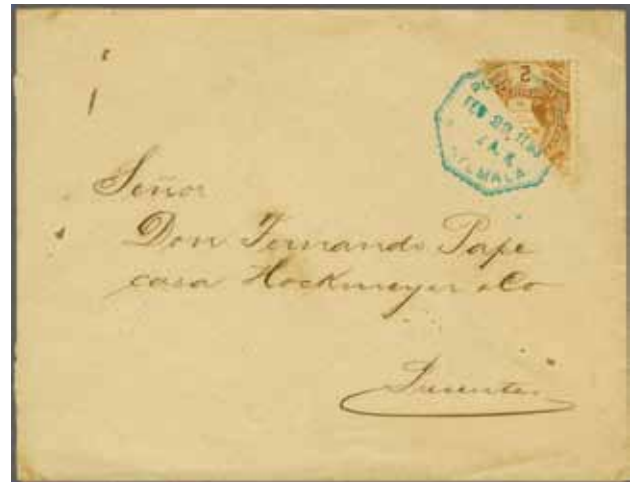 2
FEB 29
Señor
Don Fernando Pape
casa Hockmeyer & Co
Presente